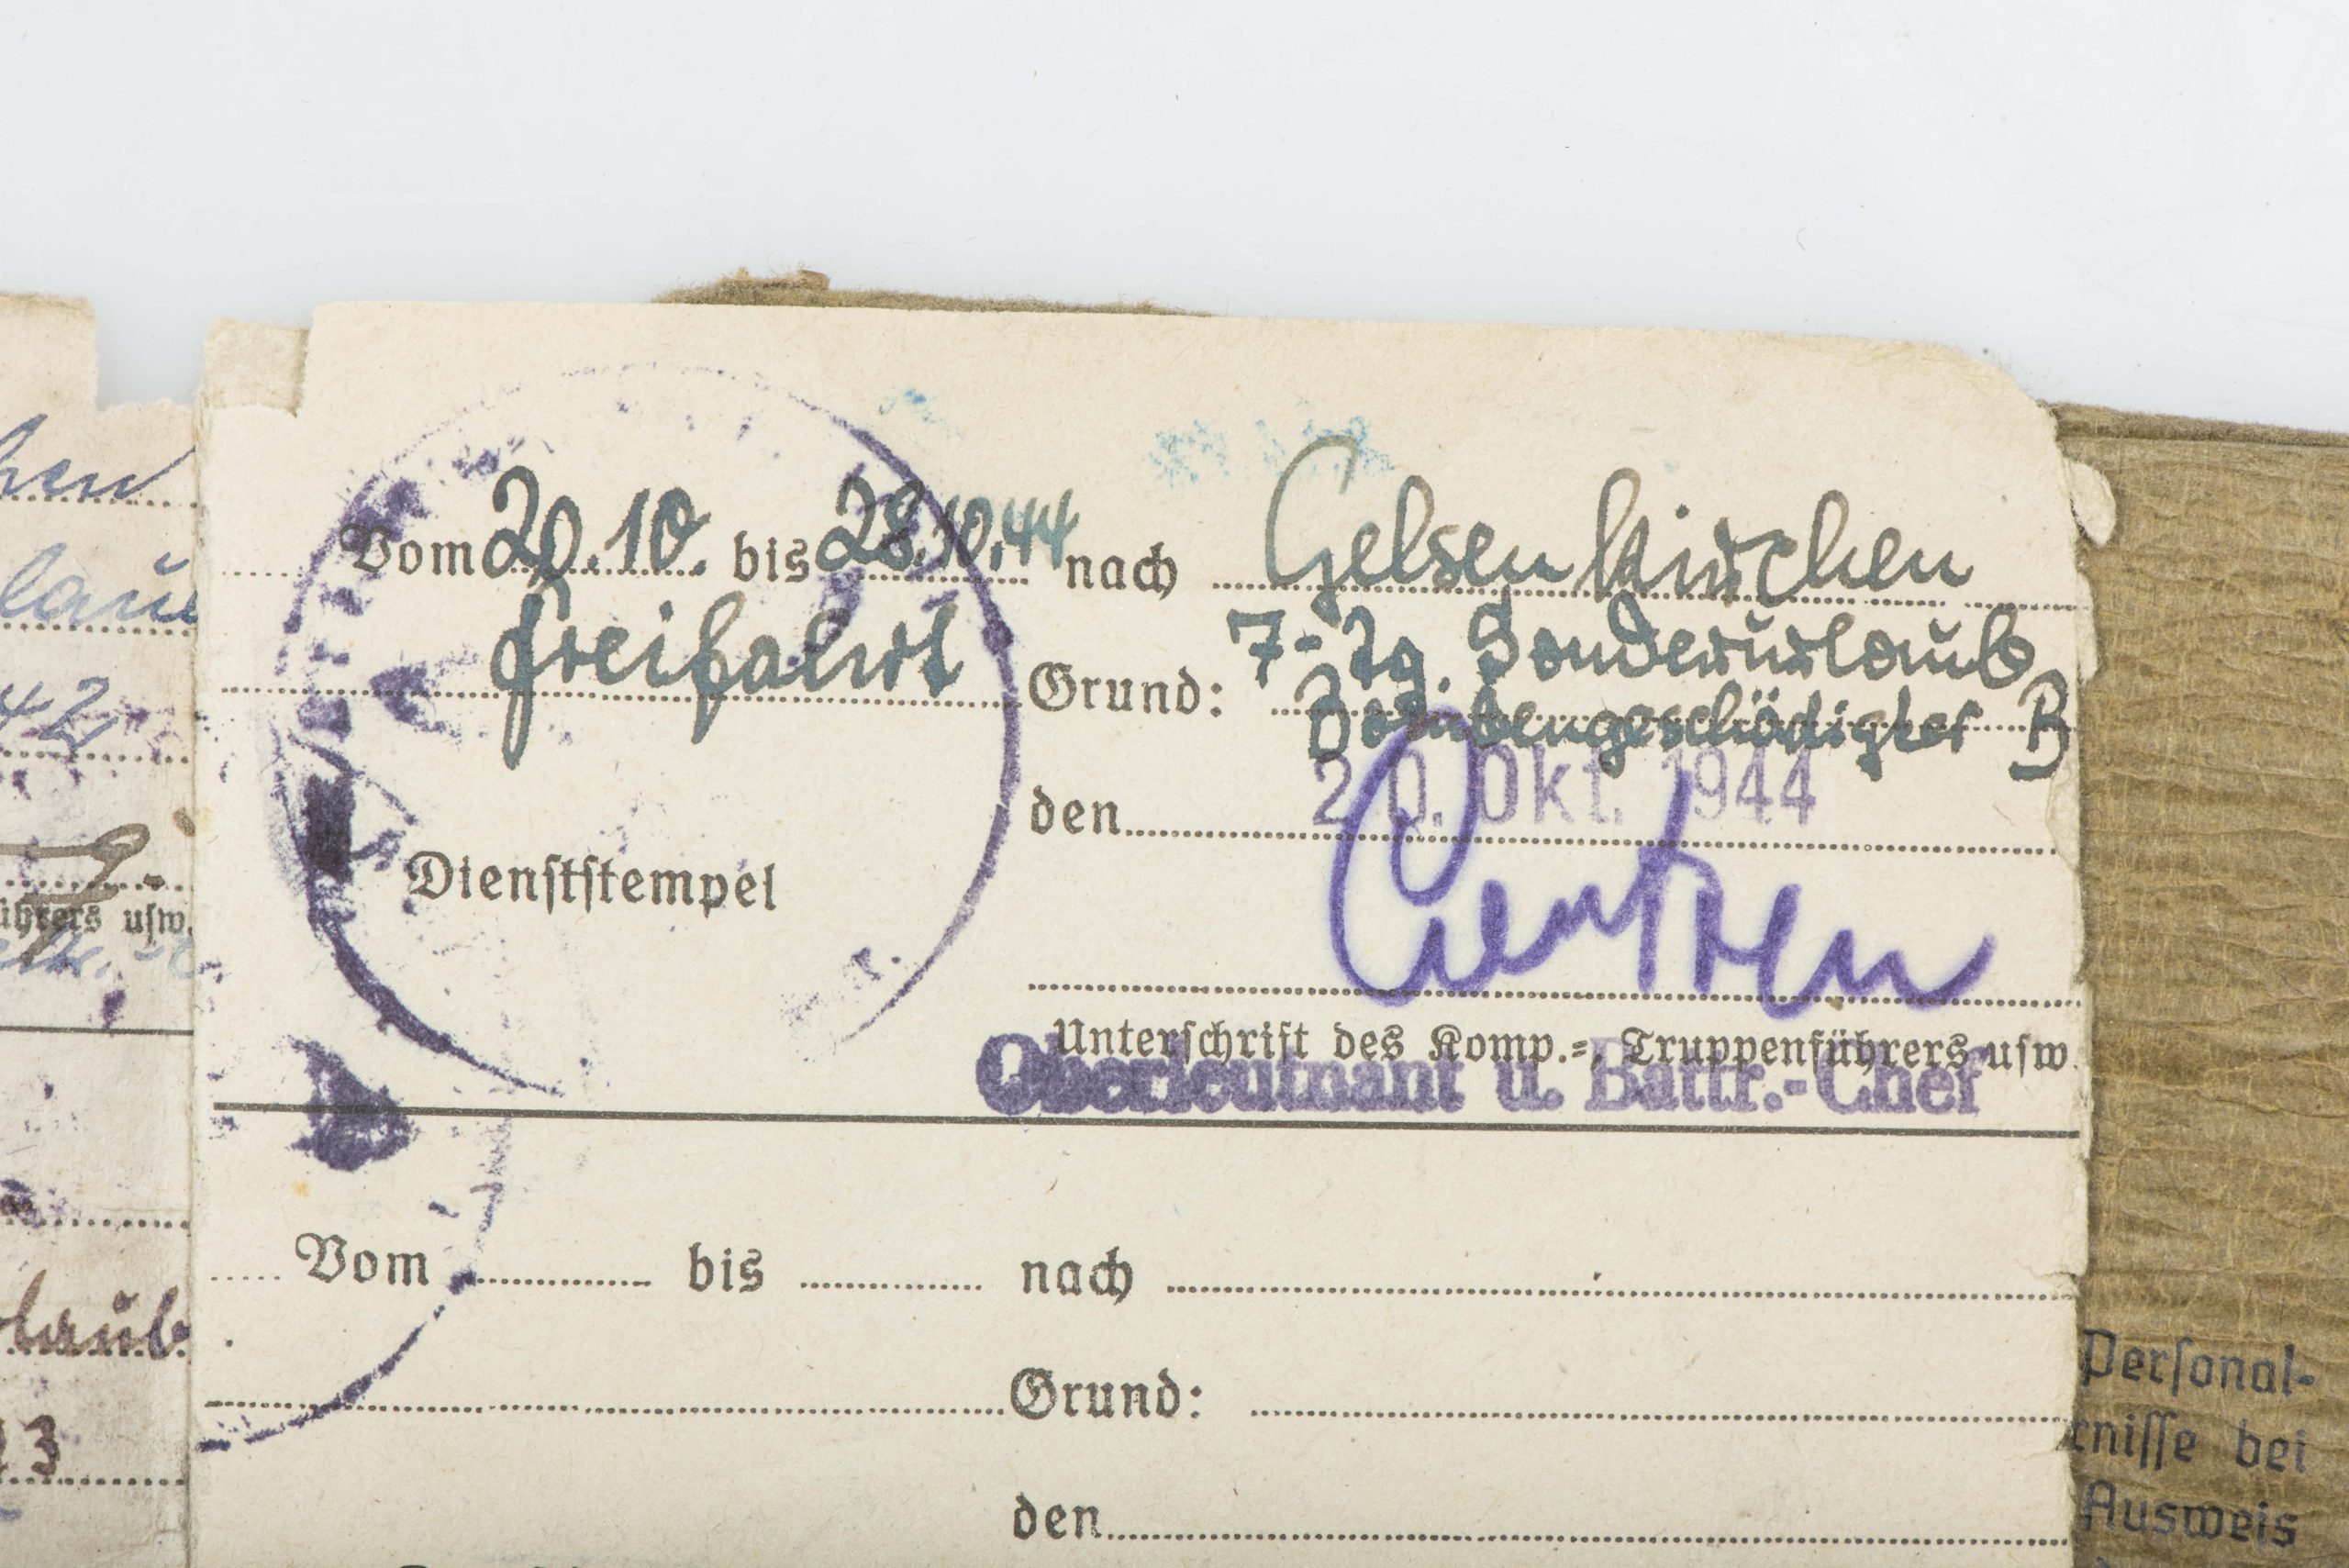 Vom 20.10. bis 28.10.44 nach Gelsenkirchen
Freifahrt
Grund: 7-Tg. Sonderurlaub
Bombengeschädigter B
den 20. Okt. 1944
Dienststempel
Unterschrift des Komp.-, Truppenführers usw.
Oberleutnant u. Battr.-Chef
Vom bis nach
Grund:
den
hen
lau
42
ührers usw.
laub
3
Personal-
rnisse bei
Ausweis